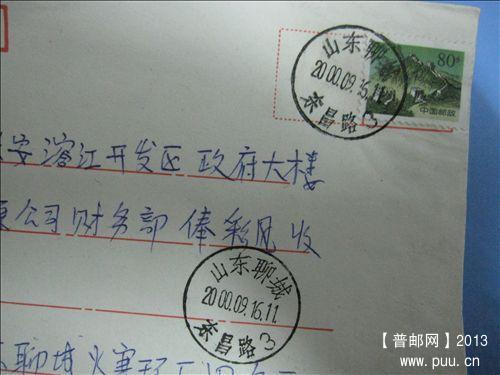 山东聊城
80分
2000.09.15.11
中国邮政
东昌路
3
安 江开发区 政府大楼
公司财务部 俸彩凤 收
山东聊城
2000.09.16.11.
东昌路 3
聊城
【普邮网】2013
www.puu.cn